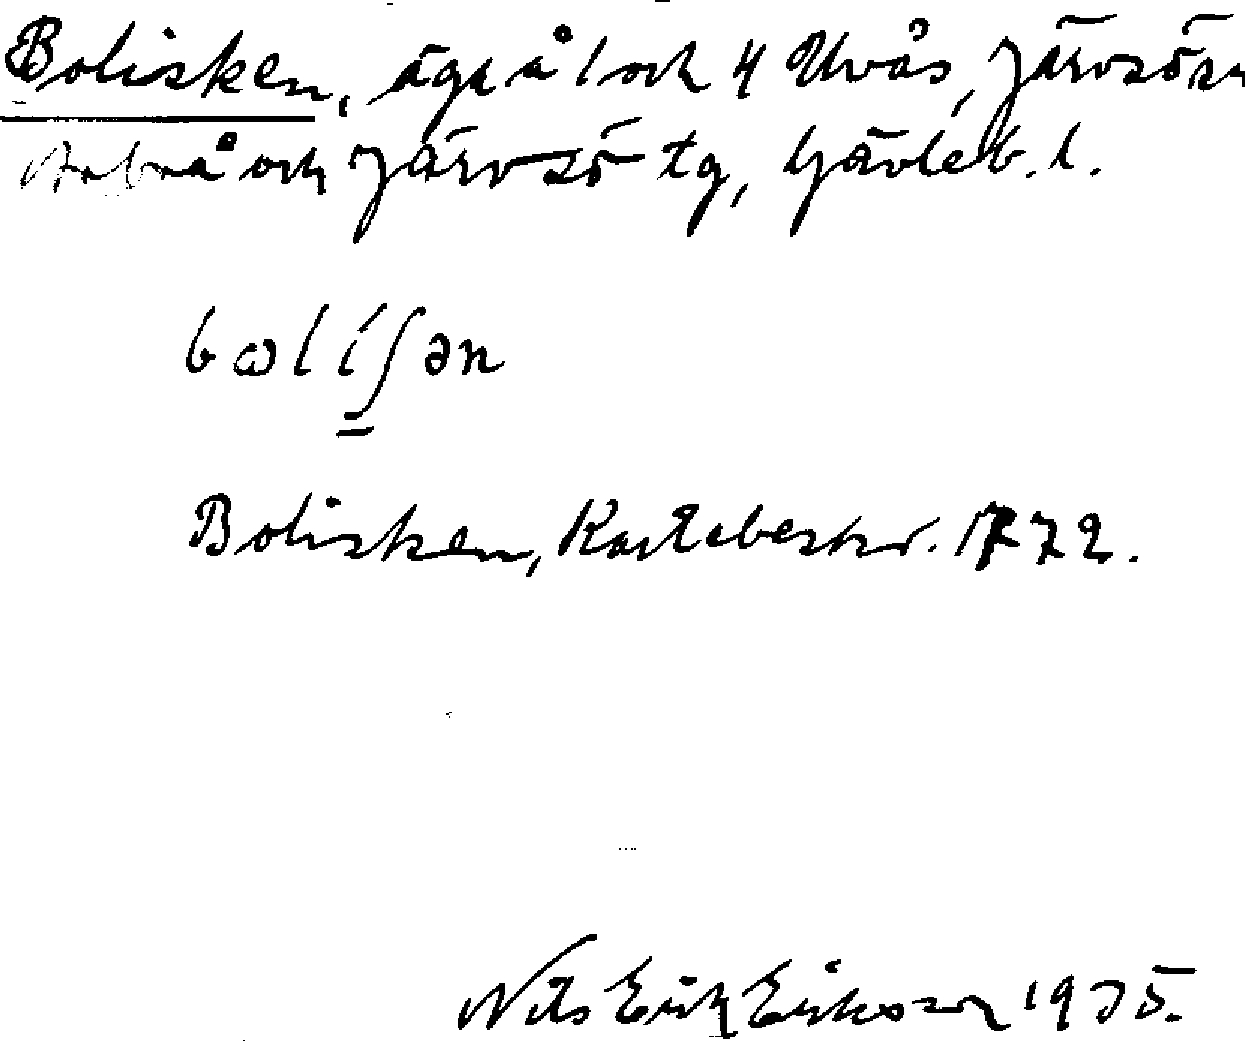 Bolisken, äga å 1 och 4 Uvås, Järvsö sn
Arbrå och Järvsö tg, Gävleb. l.
bωlíʃən
Bolisken, Kartebeskr. 1772.
Nils Erik Eriksson 1935.